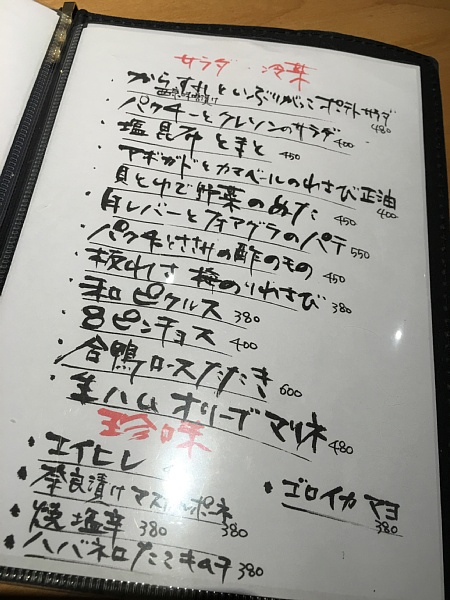 サラダ・冷菜
・からすみといぶりがっこポテトサラダ 480
西京味噌漬け
・パクチーとクレソンのサラダ 400
・塩昆布とまと 450
・アボガドとカマンベールのわさび正油 400
・貝とゆで野菜のぬた 450
・白レバーとフォアグラのパテ 550
・パクチとささみの酢のもの 450
・板わさ 梅のりわさび 380
・和ピクルス 380
・8ピンチョス 400
・合鴨ロースたたき 600
・生ハム オリーブ マリネ 480
珍味
・エイヒレ
・ゴロイカマヨ 380
・奈良漬けマスカルポーネ 380
・焼塩辛 380
・ハバネロたこキムチ 380